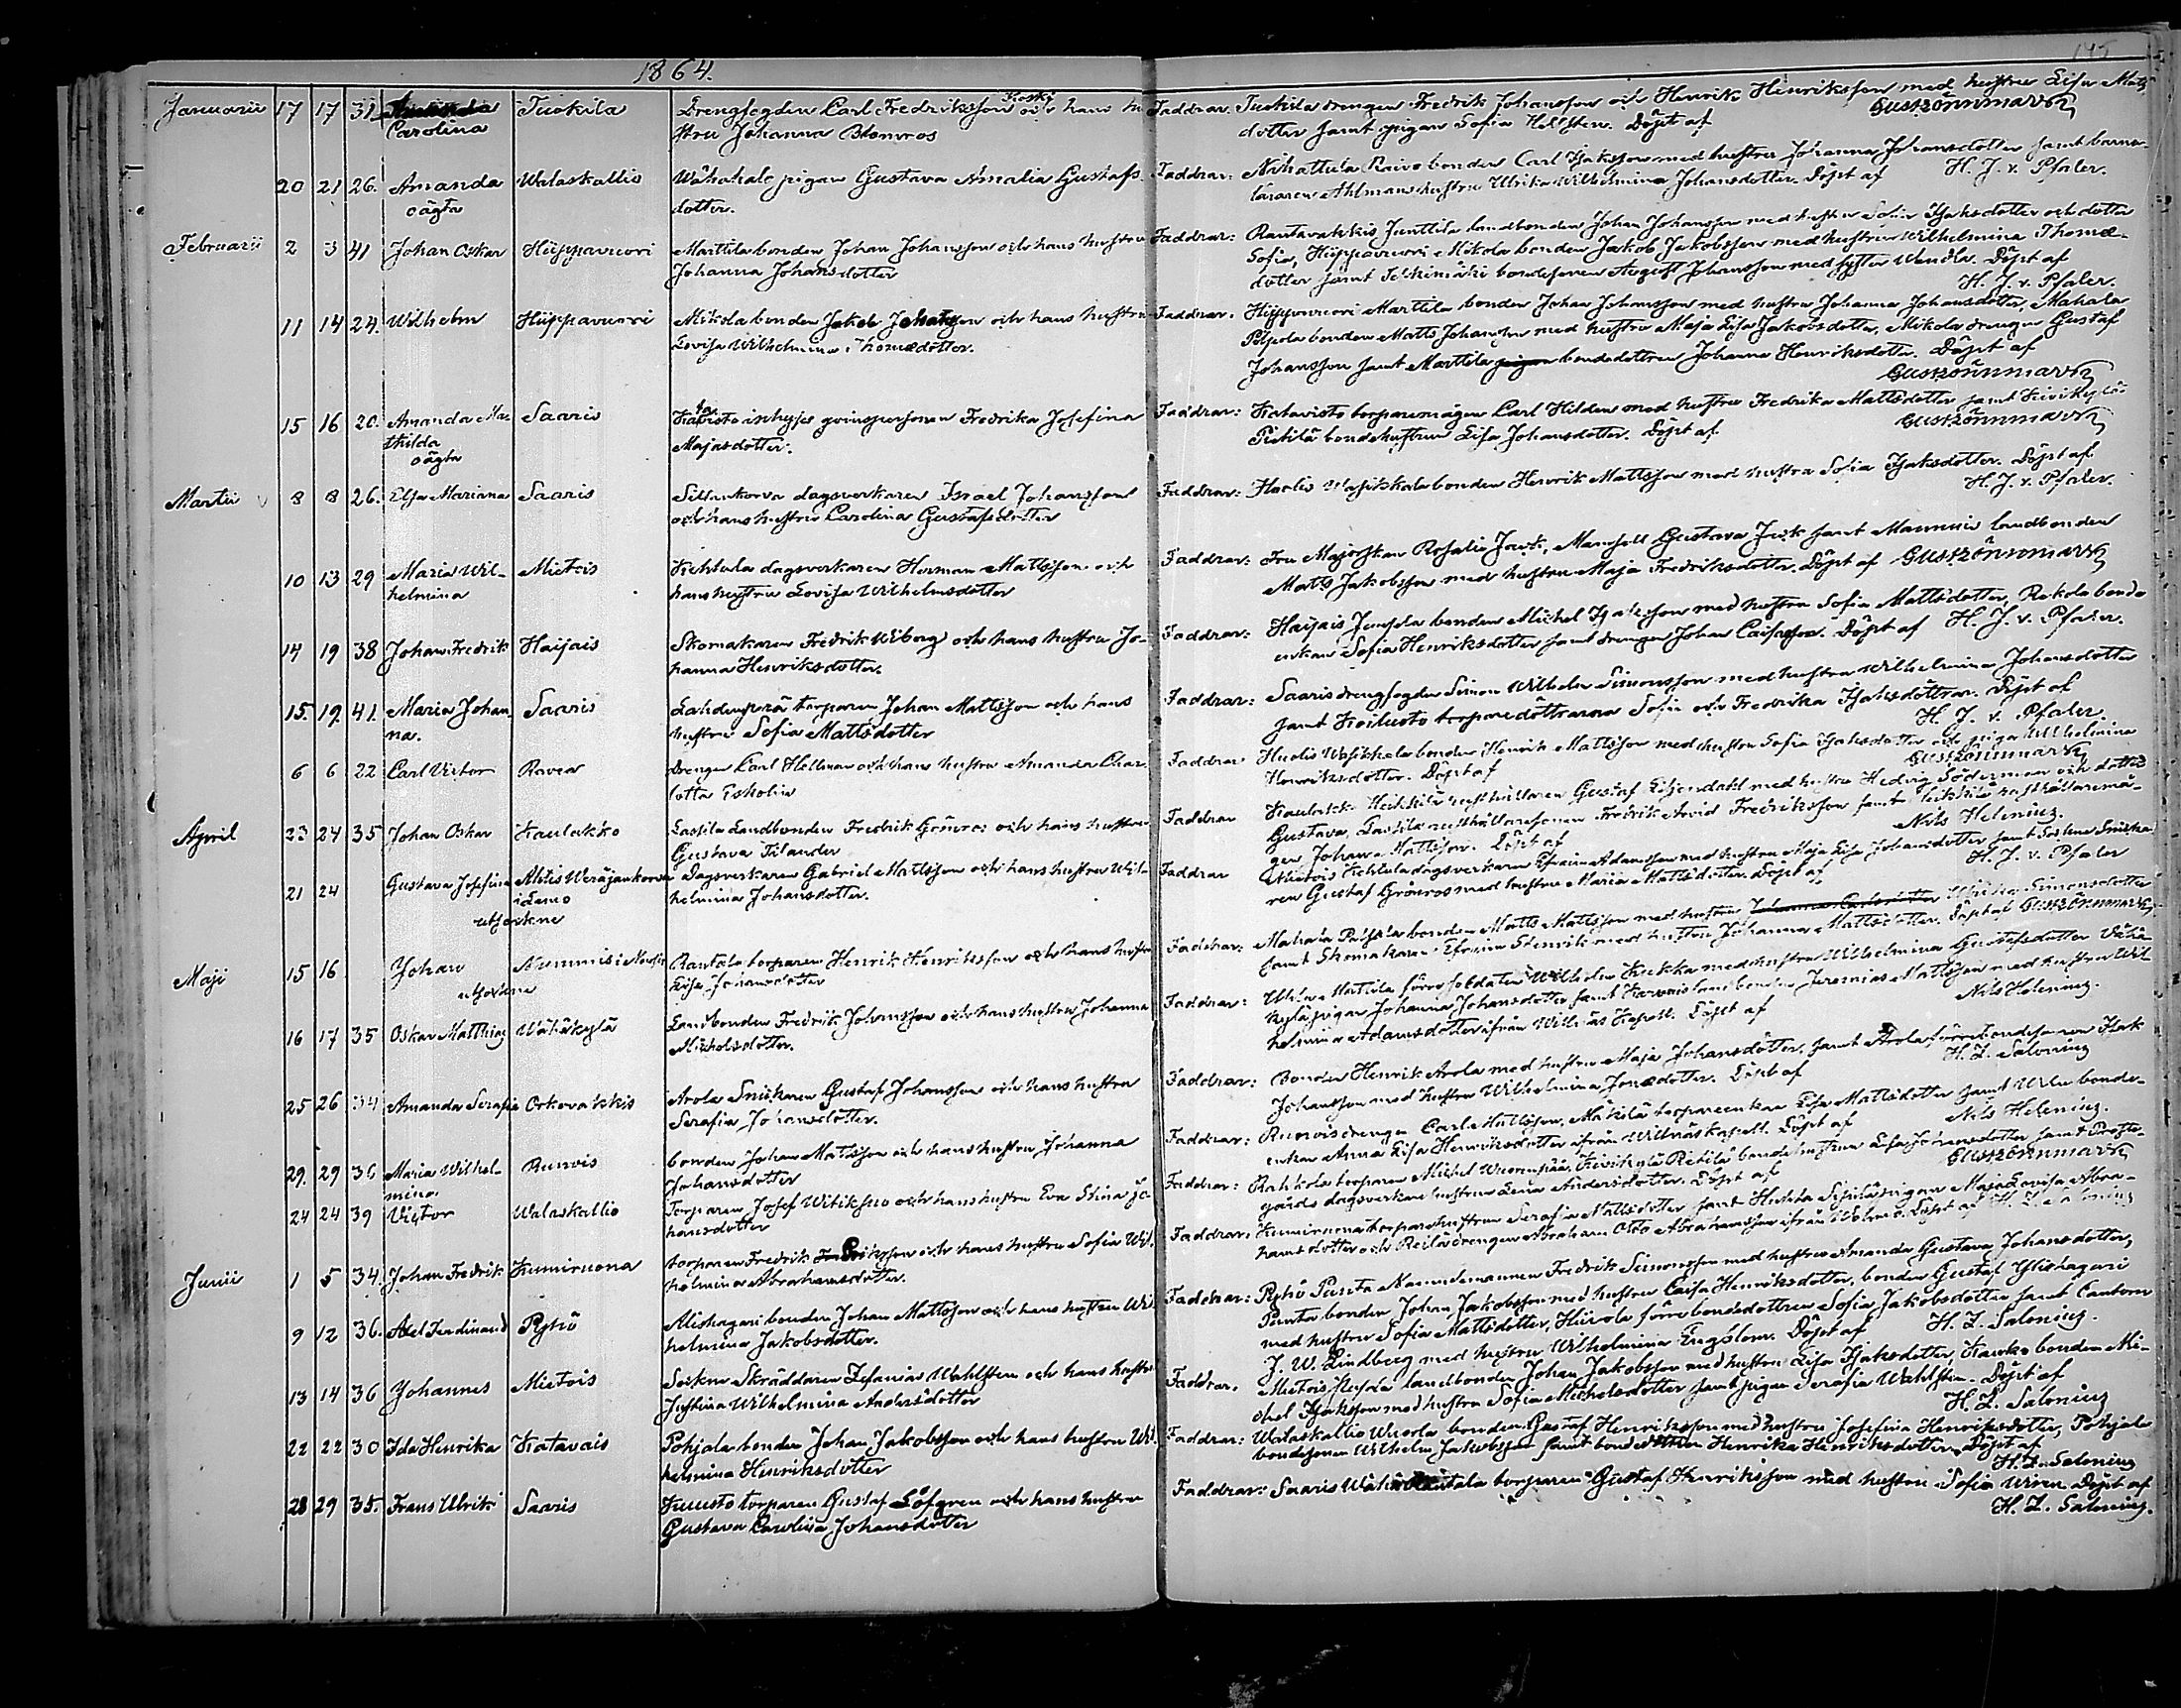 1864.
145
Januarii 17 17 31 Carolina Tuokila Drengfogden Carl Fredriksson Koski och hans hu-
stru Johanna Blomros
Faddrar: Tuokila drengen Fredrik Johansson och Henrik Henriksson med hustru Lisa Matts
dotter samt pigan Sofia Hellsten. Döpt af Gust: Rönnmark
20 21 26. Amanda Walaskallio Wähähalo pigan Gustava Amalia Gustafs-
oägta dotter.
Faddrar: Nihattula Raivo bonden Carl Isaksson med hustru Johanna Johansdotter samt barna-
läraren Ahlmans hustru Ulrika Wilhelmina Johansdotter. Döpt af H. J. v. Pfaler.
Februarii 2 3 41 Johan Oskar Hüppavuori Marttila bonden Johan Johansson och hans hustru
Johanna Johansdotter
Faddrar: Rantavakkis Junttila landbonden Johan Johansson med hustru Sofia Isaksdotter och dotter
Sofia, Hüppavuori Mikola bonden Jakob Jakobsson med hustru Wilhelmina Thomæ-
dotter samt bondesonen August Johansson med syster Wendla. Döpt af
H. J. v. Pfaler.
11 14 24. Wilhelm Hüppavuori Mikola bonden Jakob och hans hustru
Lovisa Wilhelmina Thomædotter.
Faddrar: Hüppavuori Marttila bonden Johan Johansson med hustru Johanna Johansdotter, Mahala
Pohjola bonden Matts Johansson med hustru Maja Lisa Jakobsdotter, Mikola drengen Gustaf
Johansson samt Marttila pigan bondedottren Johanna Henriksdotter. Döpt af
Gust: Rönnmark
15 16 20. Amanda Ma- Saaris Katavisto inhyses qvinspersonen Fredrika Josefina
thilda Majasdotter.
oägta
Faddrar: Katavisto torparemågen Carl Hilden med hustru Fredrika Mattsdotter samt Kivikylä
Pietilä bondehustrun Lisa Johansdotter. Döpt af Gust: Rönnmark
Martii 8 8 26. Elsa Mariana Saaris Sillankorva dagsverkaren Israel Johansson
och hans hustru Carolina Gustafsdotter
Faddrar: bonden Henrik Mattsson med hustru Sofia Isaksdotter. Döpt af
H. J. v. Pfaler.
10 13 29 Maria Wil- Mietois Kichtula dagsverkaren Herman Mattsson och
helmina hans hustru Lovisa Wilhelmsdotter
Faddrar: Fru Majorskan Rosalie Jack, Mamsell Gustava Jack samt Mannuis landbonden
Matts Jakobsson med hustru Maja Fredriksdotter. Döpt af Gust: Rönnmark
14 19 38 Johan Fredrik Haijais Skomakaren Fredrik Wiberg och hans hustru Jo-
hanna Henriksdotter.
Faddrar: Haijais bonden Michel Isaksson med hustru Sofia Mattsdotter, Rekola bonde
enkan Sofia Henriksdotter samt drengen Johan Caisason. Döpt af H. J. v. Pfaler.
15. 19. 41. Maria Johan- Saaris Lahdenperä torparen Johan Mattsson och hans
na. hustru Sofia Mattsdotter
Faddrar: Saaris drengfogden Simon Wilhelm Simonsson med hustru Wilhelmina Johansdotter
samt torparedöttrarna Sofia och Fredrika Isaksdöttrar. Döpt af
H. J. v. Pfaler.
6 6 22 Carl Victor Ravea Drengen Carl Hellman och hans hustru Amanda Char-
lotta Eskolin
Faddrar bonden Henrik Mattsson med hustru Sofia Isaksdotter och pigan Wilhelmina
Henriksdotter. Döpt af Gust: Rönnmark
April 23 24 35 Johan Oskar Kaulakko Lassila Landbonden Fredrik Grönroos och hans hustru
Gustava Tilander
Faddrar Kaulakko Heikkilä rusthållaren Gustaf Liljendahl med hustru Hedvig Södermar och dotter
Gustava, Lassila rusthållaresonen Fredrik Arvid Fredriksson samt Heikkilä rusthållaremå-
gen Johan Mattsson. Döpt af Nils Helenius.
21 24 Gustava Josefina Dagsverkaren Gabriel Mattsson och hans hustru Wil-
i Lemo helmina Johansdotter.
utsockne
Faddrar Mietois Kichtula dagsverkaren Efraim Adamsson med hustru Maja Lisa Johansdotter samt Socknesnicka-
ren Gustaf Grönroos med hustru Maria Mattsdotter. Döpt af H. J. v. Pfaler
Maji 15 16 Johan Nummis i Nousis Rantala torparen Henrik Henriksson och hans hustru
utsockne Lisa Johansdotter
Faddrar: Mahala Pohjola bonden Matts Mattsson med hustru Johanna Carlsdotter Ulrika Simonsdotter
samt Skomakaren Efraim Stenvik med hustru Johanna Mattsdotter. Döpt af Gust: Rönnmark
16 17 35 Oskar Matthias Wähäkylä Landbonden Fredrik Johansson och hans hustru Johanna
Michelsdotter.
Faddrar: Marttila förre soldaten Wilhelm Kukka med hustru Wilhelmina Gustafsdotter Vähä-
kylä pigan Johanna Johansdotter samt landbonden Jeremias Mattsson med hustru Wil-
helmina Adamsdotter ifrån Willnäs Kapell. Döpt af Nils Helenius.
25 26 34 Amanda Serafia Orkovakkis Arola Snickaren Gustaf Johansson och hans hustru
Serafia Johansdotter.
Faddrar: Bonden Henrik Arola med hustru Maja Johansdotter, samt Arola förre bondesonen Isak
Johansson med hustru Wilhelmina Jonædotter. Döpt af H. L. Salonius
29. 29 36 Maria Wilhel- Runois bonden Johan Mattsson och hans hustru Johanna
mina. Johansdotter
Faddrar: Runois drengen Carl Mattsson, Mäkilä torpareenkan Lisa Mattsdotter samt bonde-
enkan Anna Lisa Henriksdotter ifrån Willnäs kapell. Döpt af Nils Helenius.
24 24 39 Victor Walaskallio Torparen Josef Witiksuo och hans hustru Eva Stina Jo-
hansdotter
Faddrar: Rahkola torparen Michel Kivikylä Pietilä bondehustrun Lisa Johansdotter samt Prost-
gårds dagsverkare hustrun Lena Andersdotter. Döpt af Gust: Rönnmark
Junii 1 5 34. Johan Fredrik Kumiruona torparen Fredrik och hans hustru Sofia Wil-
helmina Abrahamsdotter.
Faddrar: Kumiruona torparehustrun Serafia Mattsdotter samt pigan Maja Lovisa Abra-
hamsdotter och drengen Abraham Otto Abrahamsson ifrån Döpt af H. L. Salonius
9 12 36. Axel Ferdinand Pyhö Alishagari bonden Johan Mattsson och hans hustru Wil-
helmina Jakobsdotter.
Faddrar: Pyhö Punta Nämndemannen Fredrik Simonsson med hustru Amanda Gustava Johansdotter,
Punta bonden Johan Jakobsson med hustru Caisa Henriksdotter, bonden Gustaf Ylishagari
med hustru Sofia Mattsdotter, förre bondedottren Sofia Jakobsdotter samt Cantorn
J. W. Lindberg med hustru Wilhelmina Engblom. Döpt af H. L. Salonius.
13 14 36 Johannes Mietois Sockne Skräddaren Zefanias Wahlsten och hans hustru
Justina Wilhelmina Andersdotter
Faddrar. Mietois landbonden Johan Jakobsson med hustru Lisa Isaksdotter, bonden Mi-
chel Isaksson med hustru Sofia Michelsdotter samt pigan Serafia Wahlsten. Döpt af
H. L. Salonius
22 22 30 Ida Henrika Katavais Pohjala bonden Johan Jakobsson och hans hustru Wil-
helmina Henriksdotter
Faddrar: Walaskallio bonden Gustaf Henriksson med hustru Josefina Henriksdotter, Pohjala
bondesonen Wilhelm Jakobsson samt bondedottren Henrika Henriksdotter. Döpt af
H. L. Salonius
28 29 35. Frans Ulrik Saaris torparen Gustaf Löfgren och hans hustru
Gustava Carolina Johansdotter
Faddrar: Saaris torparen Gustaf Henriksson med hustru Sofia Wiren. Döpt af
H. L. Salonius.